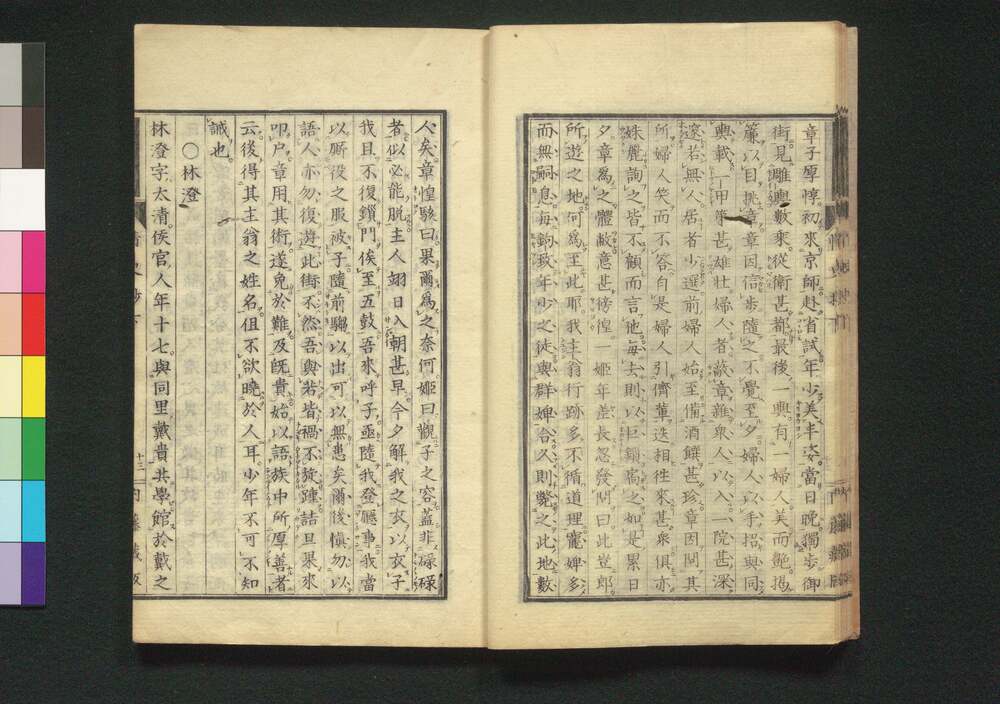 章子厚惇初來京師赴省試年少美丰姿當日晚獨步御
街見雕輿數乘從衛甚都最後一輿有一婦人美而艷揭
簾以目挑章章因信步隨之不覺至夕婦人以手招與同
輿載一甲第甚雄壯婦人者蔽章雜衆人以入一院甚深
邃若無人居者少選前婦人始至備酒饌甚珍章因問其
所婦人笑而不答自是婦人引儕輩迭相徃來甚衆俱亦
姝麗詢之皆不顧而言他每去則以巨鎖扃之如是累日
夕章爲之體敝意甚彷徨一姬年差長忽發問曰此豈郎
所遊之地何爲至此耶我主翁行跡多不循道理寵婢多
而無嗣息每鉤致年少之徒與群婢合久則斃之此地數
人矣章惶駭曰果爾爲之奈何姬曰觀子之容蓋非碌碌
者似必能脫主人翊日入朝甚早今夕解我之衣以衣子
我且不復鎖門俟至五鼓吾來呼子亟隨我登廳事我當
以廝役之服被子隨前騶以出可以無患矣爾後愼勿以
語人亦勿復遊此街不然吾與若皆禍不旋踵詰旦果來
叩户章用其術遂免於難及旣貴始以語族中所厚善者
云後得其主翁之姓名但不欲曉於人耳少年不可不知
誡也
○林澄
林澄字太清侯官人年十七與同里戴貴共學館於戴之
十三